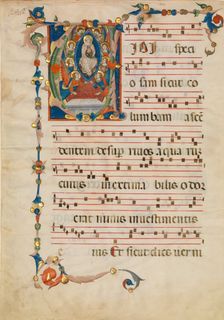 VIDI speci
osam sicut co
lumbam ascē
dentem desup rivos aqua rū
cuius inextima bilis odor
erat nimis in vestimentis
eius Et sicut dies verni